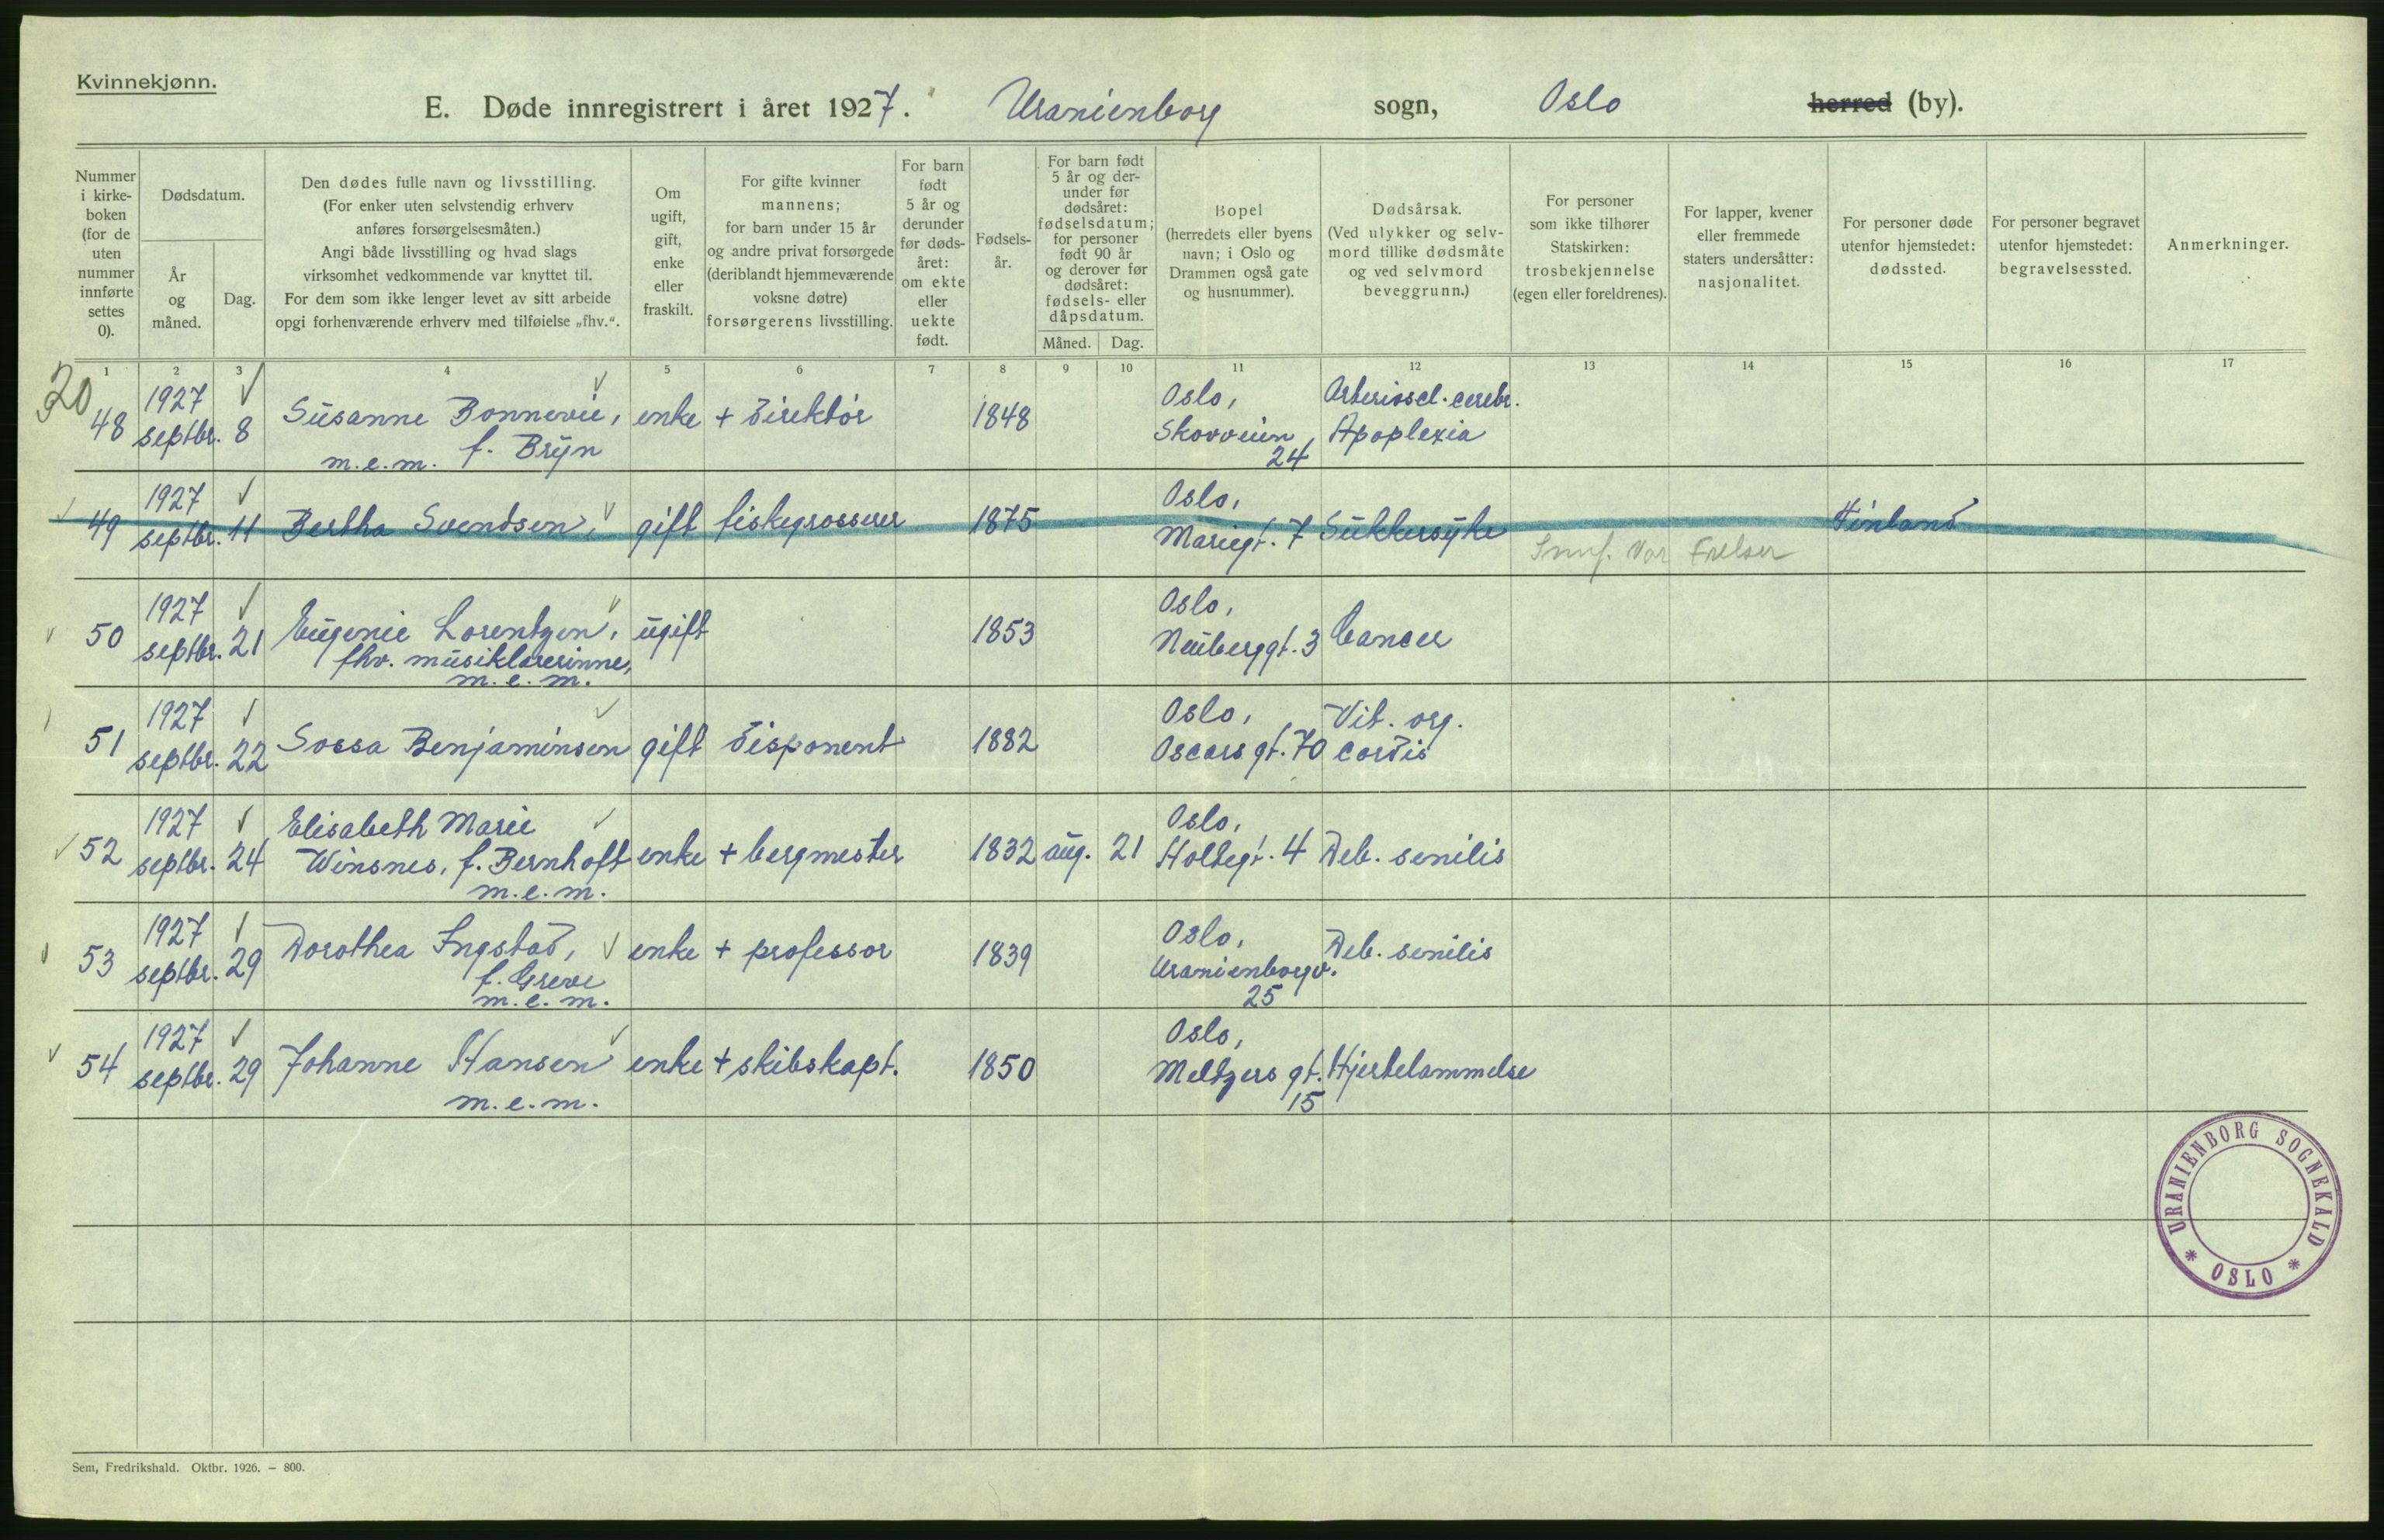 Kvinnekjønn.
E. Døde innregistrert i året 1927. Uranienborg sogn, Oslo herred (by).
Nummer i kirkeboken (for de uten nummer innførte settes 0).
Dødsdatum.
År og måned.
Dag.
Den dødes fulle navn og livsstilling.
(For enker uten selvstendig erhverv
anføres forsørgelsesmåten.)
Angi både livsstilling og hvad slags
virksomhet vedkommende var knyttet til.
For dem som ikke lenger levet av sitt arbeide
opgi forhenværende erhverv med tilføielse „fhv.“.
Om
ugift,
gift,
enke
eller
fraskilt.
For gifte kvinner
mannens;
for barn under 15 år
og andre privat forsørgede
(deriblandt hjemmeværende
voksne døtre)
forsørgerens livsstilling.
For barn
født
5 år og
derunder
før døds-
året:
om ekte
eller
uekte
født.
Fødsels-
år.
For barn født
5 år og der-
under før
dødsåret:
fødselsdatum;
for personer
født 90 år
og derover før
dødsåret:
fødsels- eller
dåpsdatum.
Måned. Dag.
Bopel
(herredets eller byens
navn; i Oslo og
Drammen også gate
og husnummer).
Dødsårsak.
(Ved ulykker og selv-
mord tillike dødsmåte
og ved selvmord
beveggrunn.)
For personer
som ikke tilhører
Statskirken:
trosbekjennelse
(egen eller foreldrenes).
For lapper, kvener
eller fremmede
staters undersåtter:
nasjonalitet.
For personer døde
utenfor hjemstedet:
dødssted.
For personer begravet
utenfor hjemstedet:
begravelsessted.
Anmerkninger.
1 2 3 4 5 6 7 8 9 10 11 12 13 14 15 16 17
20
48 1927 septbr. 8 Susanne Bonnevie, f. Bryn m.e.m. enke + direktør 1848 Oslo, Skovveien 24 Arterioscl. cerebr. Apoplexia
49 1927 septbr. 11 Bertha Svendsen, gift fiskegrosserer 1875 Oslo, Mariegt. 7 Sukkersyke Finland
Var Frelser
50 1927 septbr. 21 Eugenie Lorentzen, fhv. musiklærerinne, m.e.m. ugift 1853 Oslo, Neuberggt. 3 Cancer
51 1927 septbr. 22 Sossa Benjaminsen gift disponent 1882 Oslo, Oscars gt. 70 Vit. org. cordis
52 1927 septbr. 24 Elisabeth Marie Winsnes, f. Bernhoft m.e.m. enke + bergmester 1832 aug. 21 Oslo, Holtegt. 4 Deb. senilis
53 1927 septbr. 29 Dorothea Ingstad, f. Greve m.e.m. enke + professor 1839 Oslo, Uranienborgv. 25 Deb. senilis
54 1927 septbr. 29 Johanne Hansen m.e.m. enke + skibskapt. 1850 Oslo, Meltzers gt. 15 Hjertelammelse
URANIENBORG SOGNEKALD * OSLO *
Sem, Fredrikshald. Oktbr. 1926. – 800.